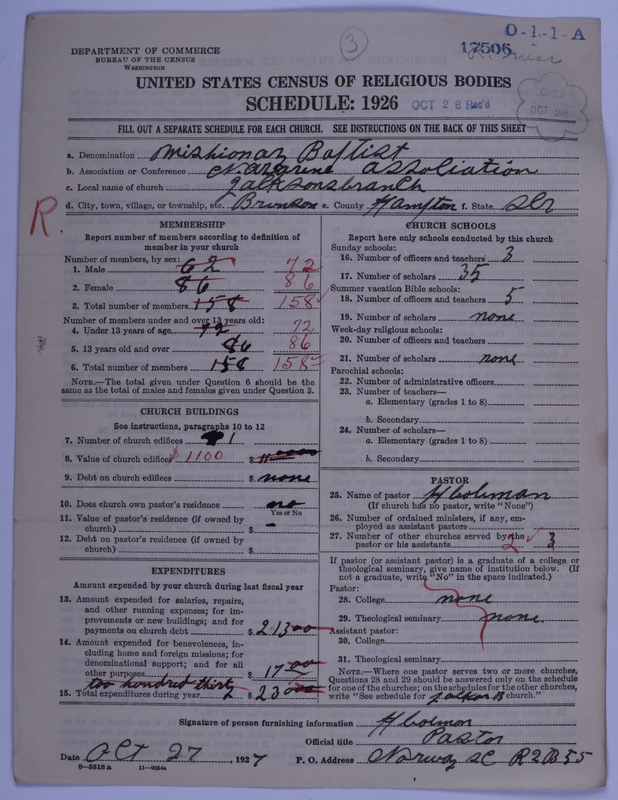 O-1-1-A
3
17506
DEPARTMENT OF COMMERCE
BUREAU OF THE CENSUS
WASHINGTON
UNITED STATES CENSUS OF RELIGIOUS BODIES
SCHEDULE: 1926
OCT 28 Rec'd
OCT 28
FILL OUT A SEPARATE SCHEDULE FOR EACH CHURCH. SEE INSTRUCTIONS ON THE BACK OF THIS SHEET
a. Denomination Mishionaz Baptist
b. Association or Conference Nazarine association
c. Local name of church Jacksonsbranch
d. City, town, village, or township, etc. Brunson e. County Hampton f. State SCr
R.
MEMBERSHIP
Report number of members according to definition of member in your church
Number of members, by sex:
1. Male 62 72
2. Female 86 86
3. Total number of members 158 158
Number of members under and over 13 years old:
4. Under 13 years of age 72 72
5. 13 years old and over 86 86
6. Total number of members 158 158
NOTE.—The total given under Question 6 should be the
same as the total of males and females given under Question 3.
CHURCH BUILDINGS
See instructions, paragraphs 10 to 12
7. Number of church edifices 1
8. Value of church edifices $1100 $
9. Debt on church edifices $ none
10. Does church own pastor's residence no
Yes or No
11. Value of pastor's residence (if owned by
church) $ -
12. Debt on pastor's residence (if owned by
church) $
EXPENDITURES
Amount expended by your church during last fiscal year
13. Amount expended for salaries, repairs,
and other running expenses; for im-
provements or new buildings; and for
payments on church debt $ 213 00
14. Amount expended for benevolences, in-
cluding home and foreign missions; for
denominational support; and for all
other purposes $ 17 00
too hundred thirty
15. Total expenditures during year $ 230
CHURCH SCHOOLS
Report here only schools conducted by this church
Sunday schools:
16. Number of officers and teachers 3
17. Number of scholars 35
Summer vacation Bible schools:
18. Number of officers and teachers 5
19. Number of scholars none
Week-day religious schools:
20. Number of officers and teachers
21. Number of scholars none
Parochial schools:
22. Number of administrative officers
23. Number of teachers—
a. Elementary (grades 1 to 8)
b. Secondary
24. Number of scholars—
a. Elementary (grades 1 to 8)
b. Secondary
PASTOR
25. Name of pastor H Coleman
(If church has no pastor, write "None")
26. Number of ordained ministers, if any, em-
ployed as assistant pastors
27. Number of other churches served by the
pastor or his assistants 2 3
If pastor (or assistant pastor) is a graduate of a college or
theological seminary, give name of institution below. (If
not a graduate, write "No" in the space indicated.)
Pastor:
28. College none
29. Theological seminary none
Assistant pastor:
30. College
31. Theological seminary
NOTE.—Where one pastor serves two or more churches,
Questions 28 and 29 should be answered only on the schedule
for one of the churches; on the schedules for the other churches,
write "See schedule for Jackson B church."
Signature of person furnishing information H Coemon
Official title Pastor
Date Oct 27, 1927 P. O. Address Norway SC R2B55
8-5518a 11-9264a